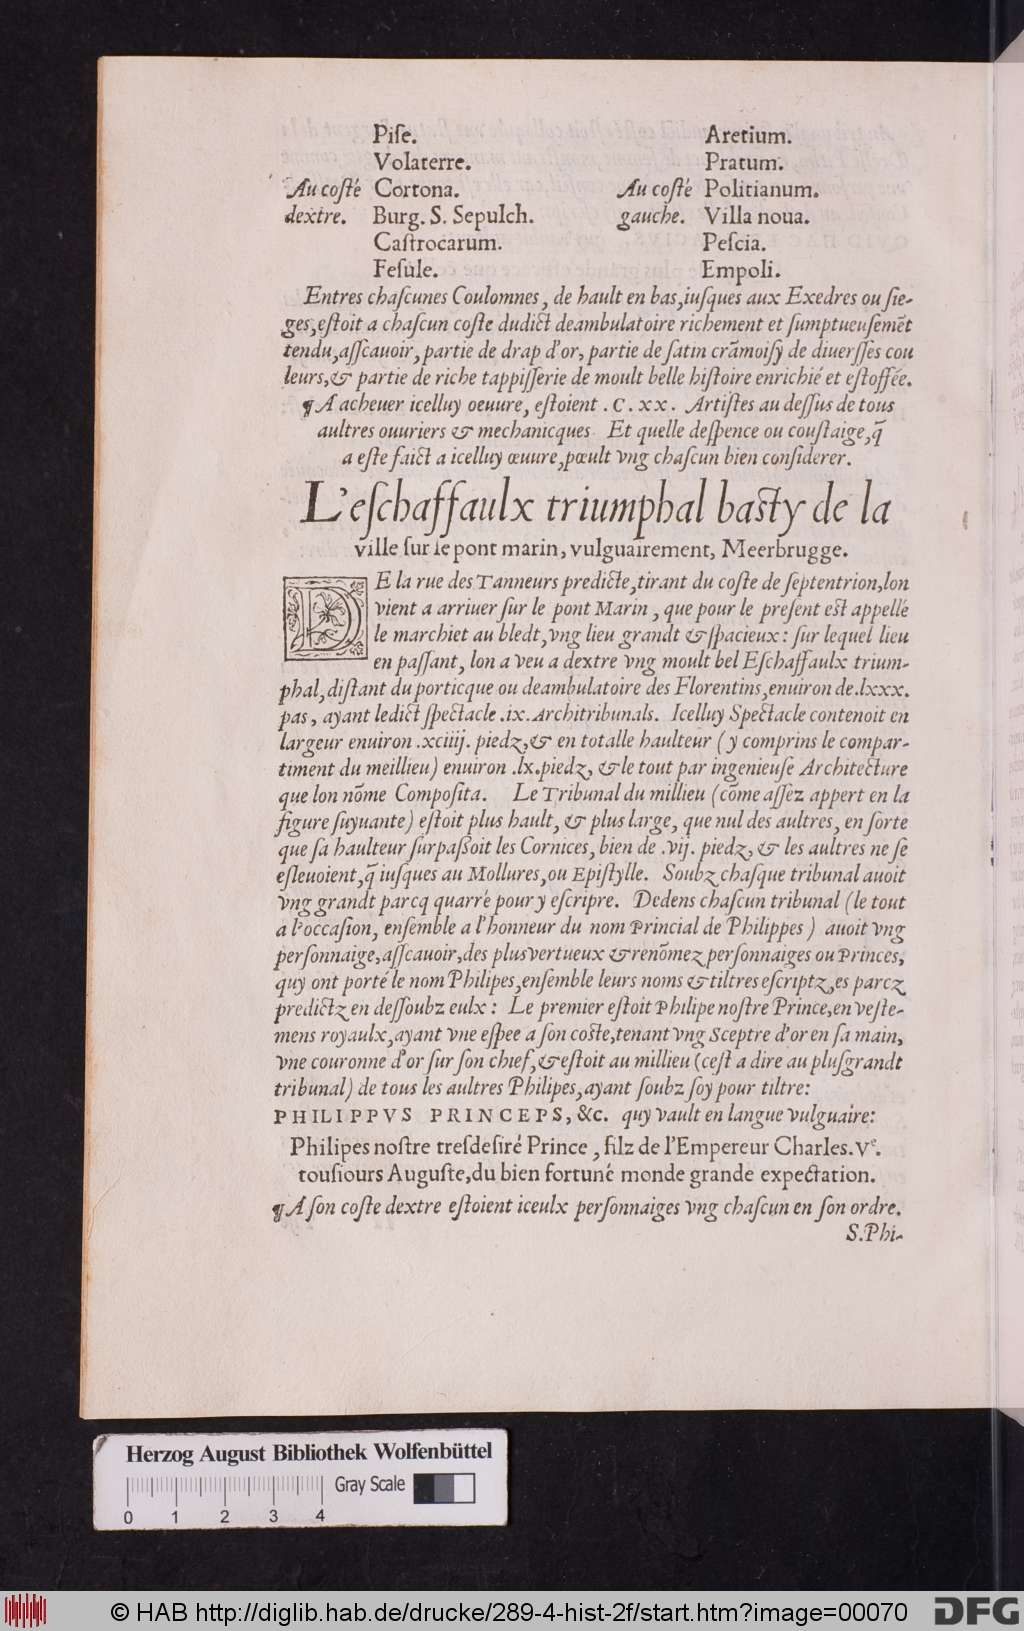 Piſe.
Volaterre.
Au coſté Cortona.
dextre. Burg. S. Sepulch.
Caſtrocarum.
Feſule.
Aretium.
Pratum.
Au coſté Politianum.
gauche. Villa noua.
Peſcia.
Empoli.
Entres chaſcunes Coulomnes, de hault en bas, iuſques aux Exedres ou ſie-
ges, eſtoit a chaſcun coſte dudict deambulatoire richement et ſumptueuſemẽt
tendu, aſſcauoir, partie de drap d'or, partie de ſatin crãmoiſy de diuerſſes cou
leurs, & partie de riche tappiſſerie de moult belle hiſtoire enrichié et eſtoffée.
¶ A acheuer icelluy oeuure, eſtoient .C.xx. Artiſtes au deſſus de tous
aultres ouuriers & mechanicques Et quelle deſpence ou couſtaige, q̃
a eſte faict a icelluy œuure, pœult vng chaſcun bien conſiderer.
L'eſchaffaulx triumphal baſty de la
ville ſur le pont marin, vulguairement, Meerbrugge.
DE la rue des Tanneurs predicte, tirant du coſte de ſeptentrion, lon
vient a arriuer ſur le pont Marin, que pour le preſent eſt appellé
le marchiet au bledt, vng lieu grandt & ſpacieux: ſur lequel lieu
en paſſant, lon a veu a dextre vng moult bel Eſchaffaulx trium-
phal, diſtant du porticque ou deambulatoire des Florentins, enuiron de .lxxx.
pas, ayant ledict ſpectacle .ix. Architribunals. Icelluy Spectacle contenoit en
largeur enuiron .xciiij. piedz, & en totalle haulteur (y comprins le compar-
timent du meillieu) enuiron .lx. piedz, & le tout par ingenieuſe Architecture
que lon nõme Compoſita. Le Tribunal du millieu (cõme aſſez appert en la
figure ſuyuante) eſtoit plus hault, & plus large, que nul des aultres, en ſorte
que ſa haulteur ſurpaſſoit les Cornices, bien de .vij. piedz, & les aultres ne ſe
eſleuoient, q̃ iuſques au Mollures, ou Epiſtylle. Soubz chaſque tribunal auoit
vng grandt parcq quarré pour y eſcripre. Dedens chaſcun tribunal (le tout
a l'occaſion, enſemble a l'honneur du nom Princial de Philippes) auoit vng
perſonnaige, aſſcauoir, des plus vertueux & renõmez perſonnaiges ou Princes,
quy ont porté le nom Philipes, enſemble leurs noms & tiltres eſcriptz, es parcz
predictz en deſſoubz eulx: Le premier eſtoit Philipe noſtre Prince, en veſte-
mens royaulx, ayant vne eſpee a ſon coſte, tenant vng Sceptre d'or en ſa main,
vne couronne d'or ſur ſon chief, & eſtoit au millieu (ceſt a dire au pluſgrandt
tribunal) de tous les aultres Philipes, ayant ſoubz ſoy pour tiltre:
PHILIPPVS PRINCEPS, &c. quy vault en langue vulguaire:
Philipes noſtre treſdeſiré Prince, filz de l'Empereur Charles. Ve.
touſiours Auguſte, du bien fortuné monde grande expectation.
¶ A ſon coſte dextre eſtoient iceulx perſonnaiges vng chaſcun en ſon ordre.
S. Phi-
Herzog August Bibliothek Wolfenbüttel
Gray Scale
0 1 2 3 4
© HAB http://diglib.hab.de/drucke/289-4-hist-2f/start.htm?image=00070
DFG